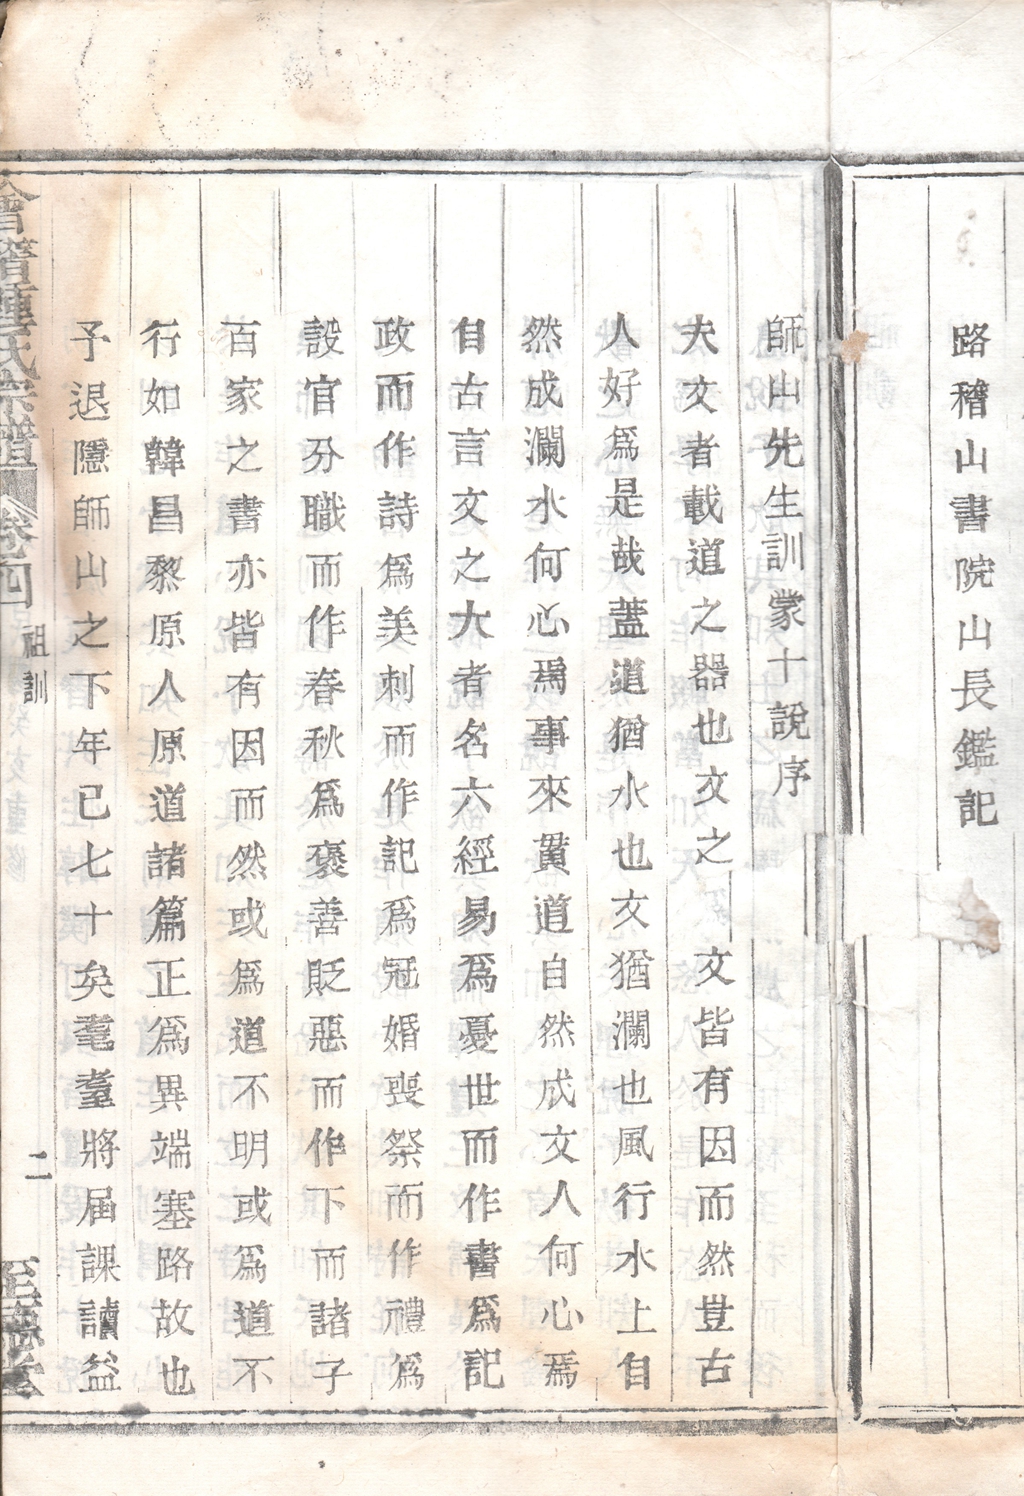 路稽山書院山長鑑記
師山先生訓蒙十說序
夫文者載道之器也文之 文皆有因而然豈古
人好爲是哉蓋道猶水也文猶瀾也風行水上自
然成瀾水何心焉事來貫道自然成文人何心焉
自古言文之大者名六經易爲憂世而作書爲記
政而作詩爲美刺而作記爲冠婚喪祭而作禮爲
設官分職而作春秋爲褒善貶惡而作下而諸子
百家之書亦皆有因而然或爲道不明或爲道不
行如韓昌黎原人原道諸篇正爲異端塞路故也
予退隱師山之下年已七十矣耄耋將屆課讀益
會稽 氏宗譜 卷四 祖訓 二 至 堂